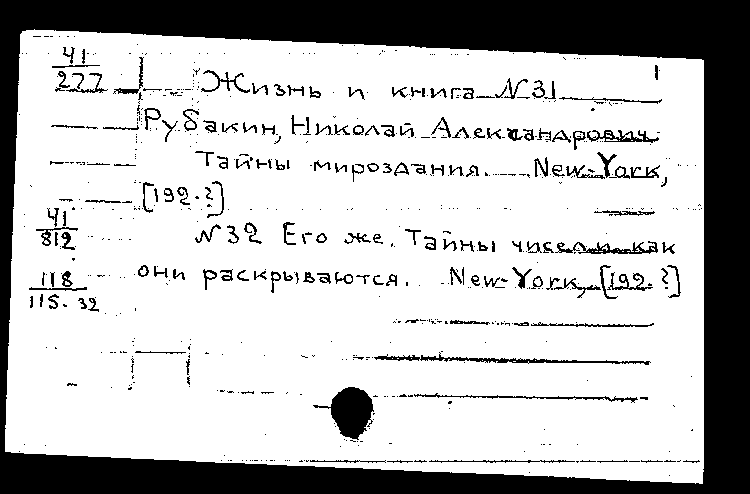 41
277
1
Жизнь и книга №31
Рубакин, Николай Александрович
Тайны мироздания. New-York,
[192.?]
41
812
№32 Его же. Тайны чисел и как
они раскрываются. New-York, [192.?]
118
115.32